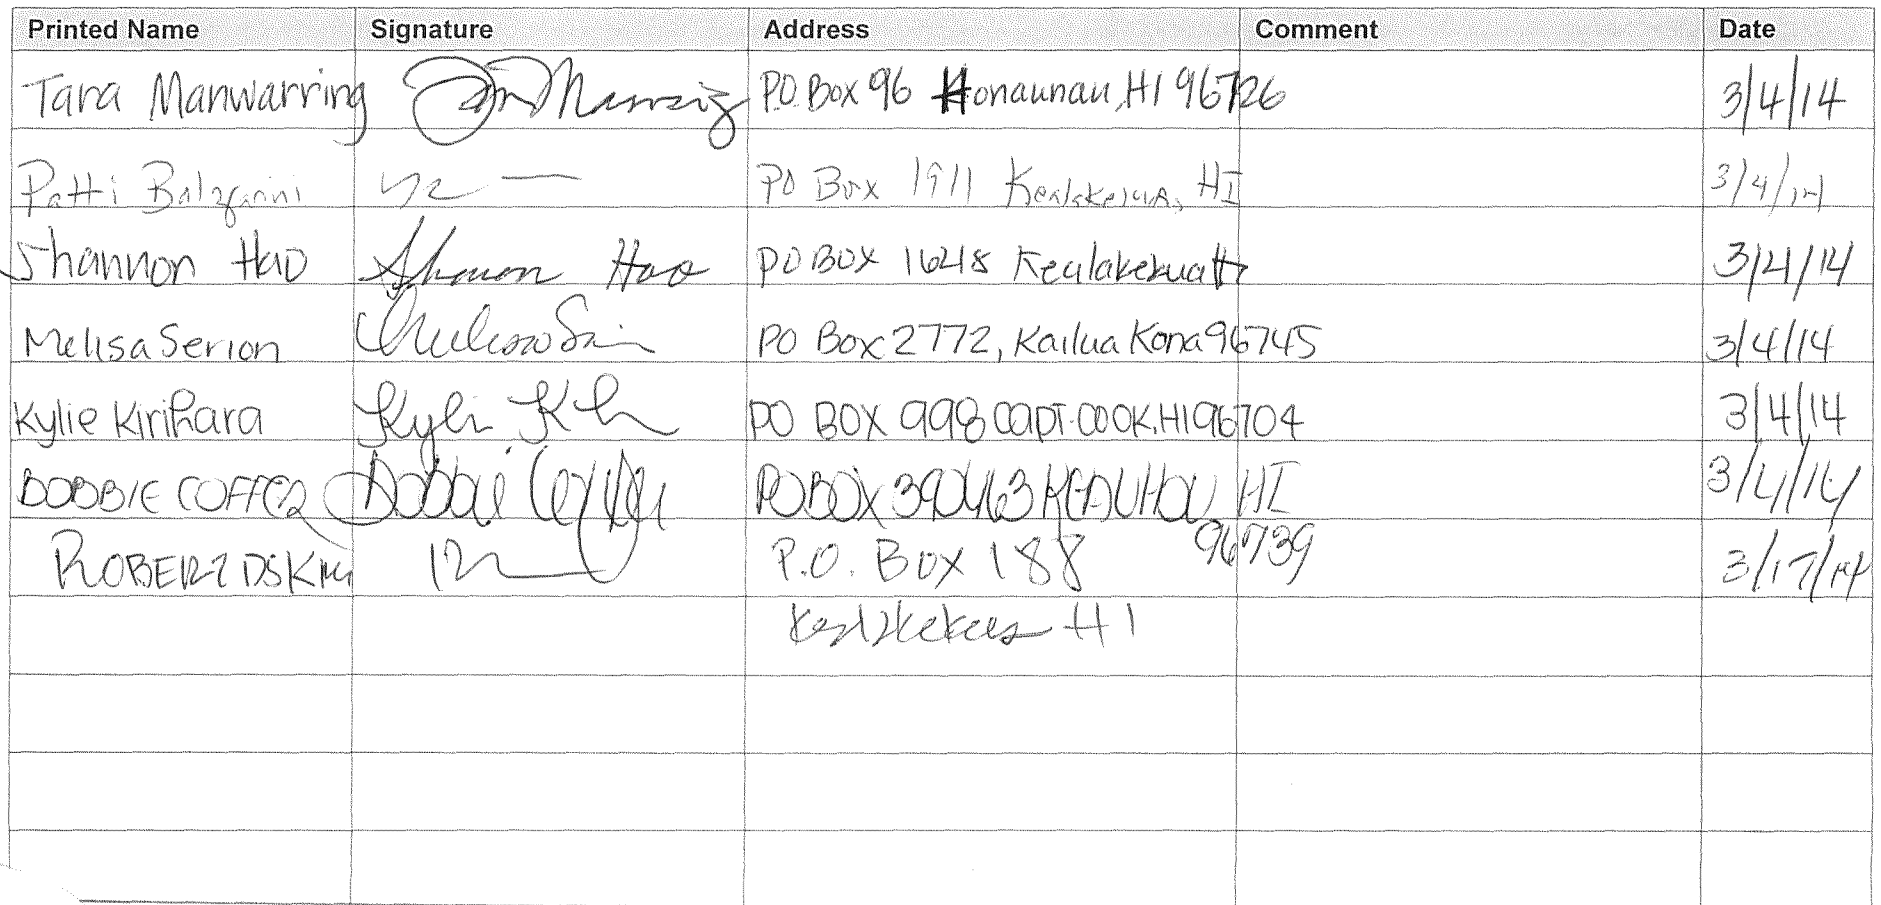 Printed Name Signature Address Comment Date
Tara Manwarring P.O. Box 96 Honaunau, HI 96726 3/4/14
Patti PO Box 1911 Kealakekua, HI 3/4/14
Shannon Hao Shannon Hao PO BOX 1648 Kealakekua HI 3/4/14
Melisa Serion PO Box 2772, Kailua Kona 96745 3/4/14
Kylie Kirihara PO BOX 998 CAPT. COOK, HI 96704 3/4/14
BOBBIE COFFEE Bobbie PO BOX 390463 KEAUHOU HI 3/4/14
96739
ROBERT P.O. Box 188 3/17/14
Kealakekua HI